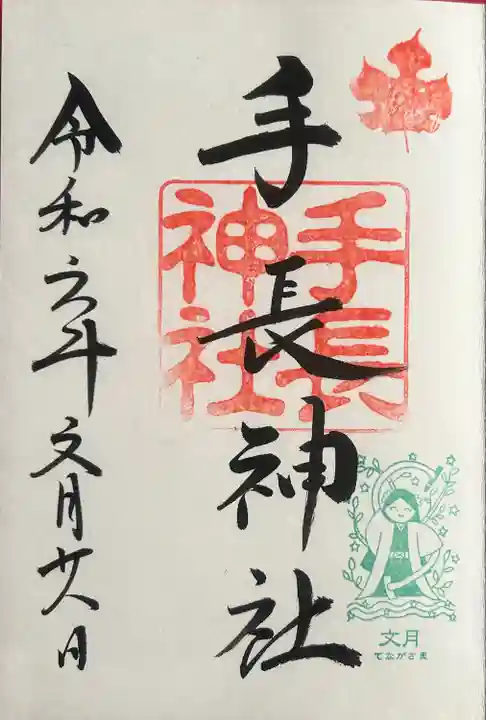 手長神社
手長
神社
令和六年文月廿八日
文月
てながさま